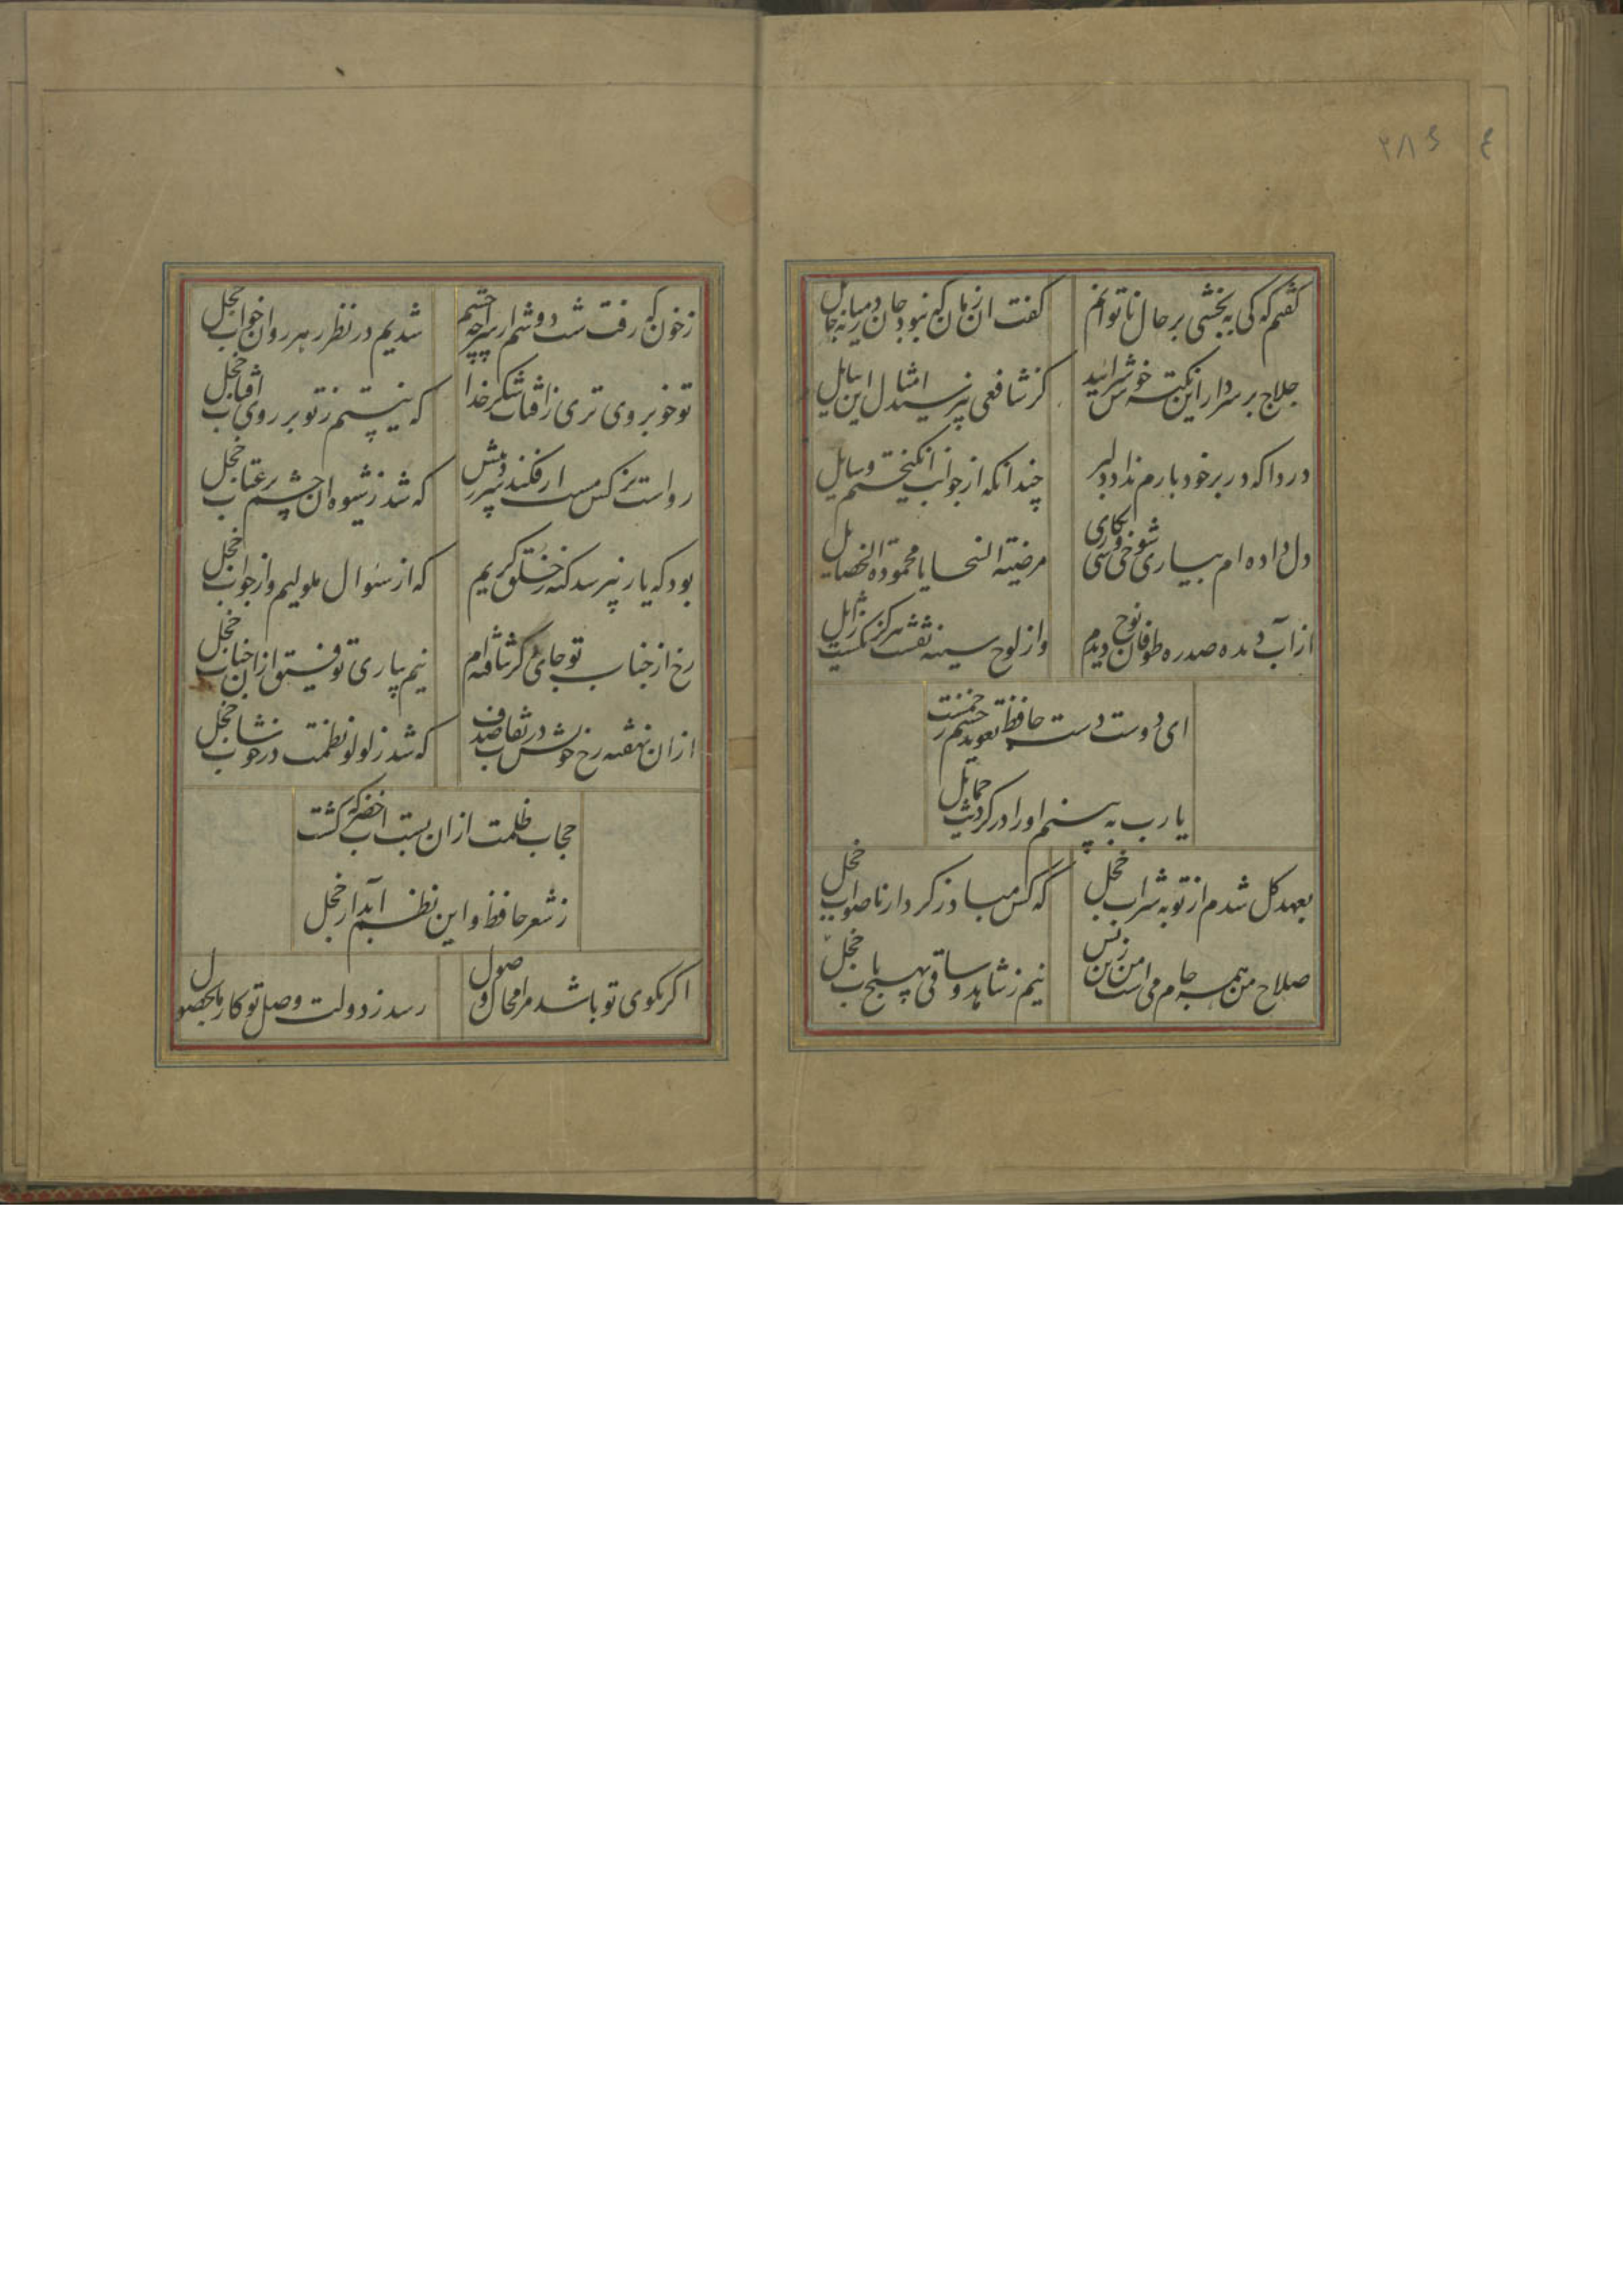 ۲۸۶
ع
گفتم که کی ببخشی بر حال ناتوانم
گفت ان زمان که نبود جان در میانه حایل
حلاج بر سر دار این نکته خوش سراید
کز شافعی نپرسید امثال این مسایل
دردا که در بر خود بارم نداد دلبر
چندانکه از جوانب انگیختم وسایل
دل داده ام بیاری شوخی کشی نگاری
مرضیة السجایا محمودة الخصایل
از آب دیده صد ره طوفان نوح دیدم
وز لوح سینه نقشت هرگز نگشت زایل
ای دوست دست حافظ تعویذ چشم زخمست
یارب به بینم اورا در گردنت حمایل
بعهد گل شدم از توبه شراب خجل
که کس مباد ز کردار ناصواب خجل
صلاح من همه جام می است من زین بس
نیم ز شاهد و ساقی بهیچ باب خجل
ز خون که رفت شب دوش از سراچه چشم
شدیم در نظر رهروان خواب خجل
تو خوبروی تری ز افتاب شکر خدا
که نیستم ز تو بر روی افتاب خجل
رواست نرکس مست ار فکند سر در پیش
که شد ز شیوه ان چشم پر عتاب خجل
بود که یار نپرسد گنه ز خلق کریم
که از سئوال ملولیم و از جواب خجل
رخ از جناب تو جائی گر شتافته ام
نیم بیاری توفیق ازان جناب خجل
ازان نهفته رخ خویش در نقاب صدف
که شد ز لولو نظمت در خوشاب خجل
حجاب ظلمت ازان بست اب خضر که گشت
ز شعر حافظ و این نظم آبدار خجل
اگر بکوی تو باشد مرا مجال وصول
رسد ز دولت وصل تو کار ما بحصول